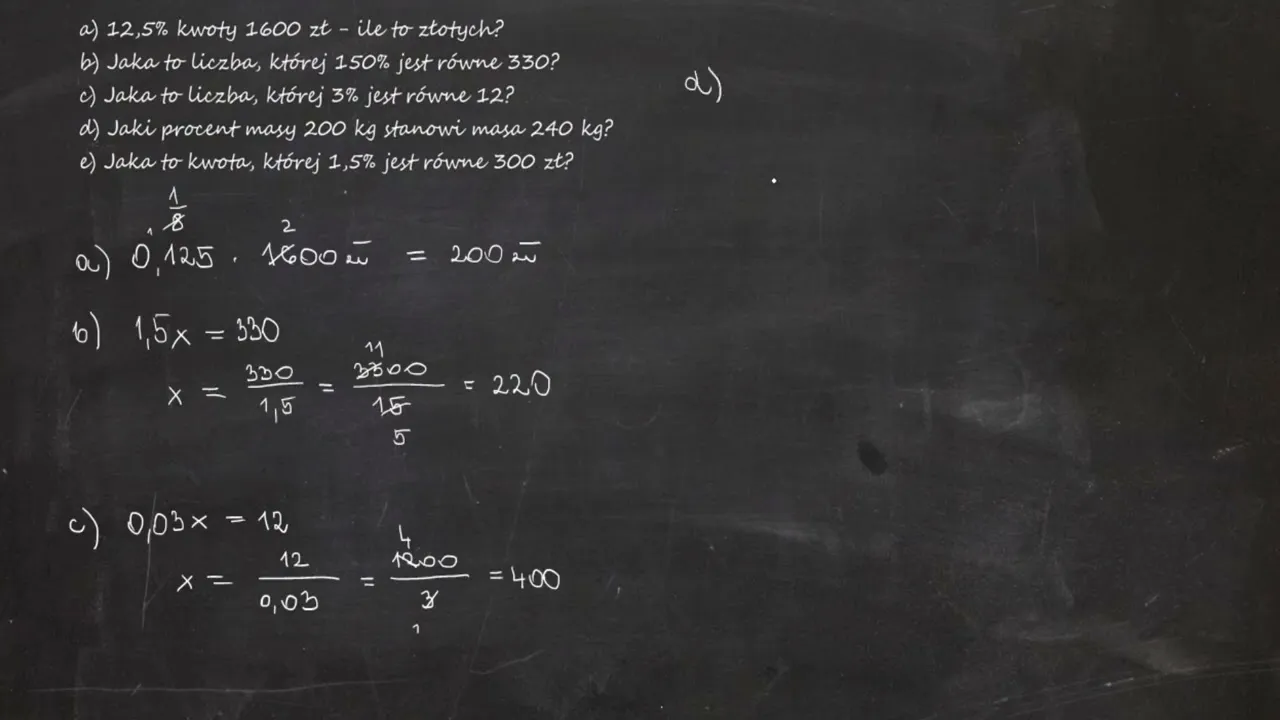 a) 12,5% kwoty 1600 zł - ile to złotych?
b) Jaka to liczba, której 150% jest równe 330?
c) Jaka to liczba, której 3% jest równe 12?
d) Jaki procent masy 200 kg stanowi masa 240 kg?
e) Jaka to kwota, której 1,5% jest równe 300 zł?
1
8 2
a) 0,125 · 1600 zł = 200 zł
b) 1,5x = 330
11
x = 330/1,5 = 3300/15 = 220
5
c) 0,03x = 12
4
x = 12/0,03 = 1200/3 = 400
1
d)